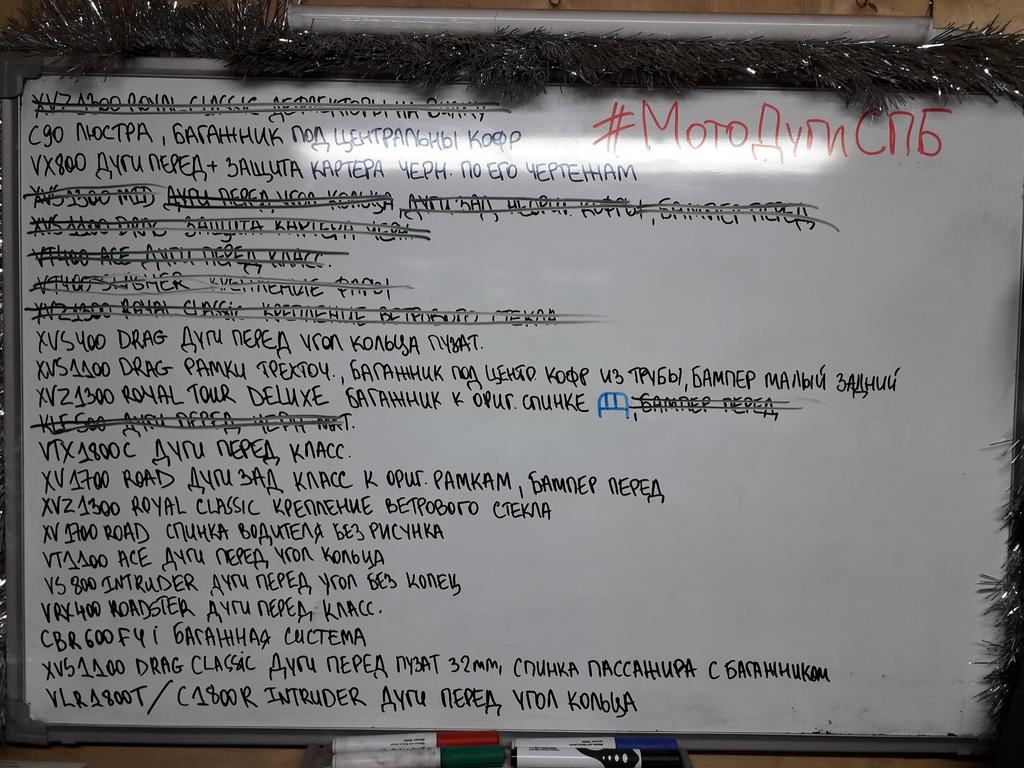 XVZ1300 ROYAL CLASSIC ДЕФЛЕКТОРЫ НА ВИЛКУ
#МотоДугиСПБ
C90 ЛЮСТРА, БАГАЖНИК ПОД ЦЕНТРАЛЬНЫ КОФР
VX800 ДУГИ ПЕРЕД + ЗАЩИТА КАРТЕРА ЧЕРН. ПО ЕГО ЧЕРТЕЖАМ
XVS1300 MID ДУГИ ПЕРЕД УГОЛ КОЛЬЦА, ДУГИ ЗАД, НЕОРИГ. КОФРЫ, БАМПЕР ПЕРЕД,
XVS1100 DRAG ЗАЩИТА КАРТЕРА ЧЕРН.
VT400 ACE ДУГИ ПЕРЕД КЛАСС.
VT400 SLASHER КРЕПЛЕНИЕ ФАРЫ
XVZ1300 ROYAL CLASSIC КРЕПЛЕНИЕ ВЕТРОВОГО СТЕКЛА
XVS400 DRAG ДУГИ ПЕРЕД УГОЛ КОЛЬЦА ПУЗАТ.
XVS1100 DRAG РАМКИ ТРЕХТОЧ., БАГАЖНИК ПОД ЦЕНТР. КОФР ИЗ ТРУБЫ, БАМПЕР МАЛЫЙ ЗАДНИЙ
XVZ1300 ROYAL TOUR DELUXE БАГАЖНИК К ОРИГ. СПИНКЕ, БАМПЕР ПЕРЕД,
ДУГИ ПЕРЕД ЧЕРН МАТ.
VTX1800C ДУГИ ПЕРЕД КЛАСС.
XV1700 ROAD ДУГИ ЗАД КЛАСС К ОРИГ. РАМКАМ, БАМПЕР ПЕРЕД
XVZ1300 ROYAL CLASSIC КРЕПЛЕНИЕ ВЕТРОВОГО СТЕКЛА
XV1700 ROAD СПИНКА ВОДИТЕЛЯ БЕЗ РИСУНКА
VT1100 ACE ДУГИ ПЕРЕД УГОЛ КОЛЬЦА
VS800 INTRUDER ДУГИ ПЕРЕД УГОЛ БЕЗ КОЛЕЦ
VRX400 ROADSTER ДУГИ ПЕРЕД КЛАСС.
CBR600F4i БАГАЖНАЯ СИСТЕМА
XVS1100 DRAG CLASSIC ДУГИ ПЕРЕД ПУЗАТ 32mm, СПИНКА ПАССАЖИРА С БАГАЖНИКОМ
VLR1800T/C1800R INTRUDER ДУГИ ПЕРЕД УГОЛ КОЛЬЦА